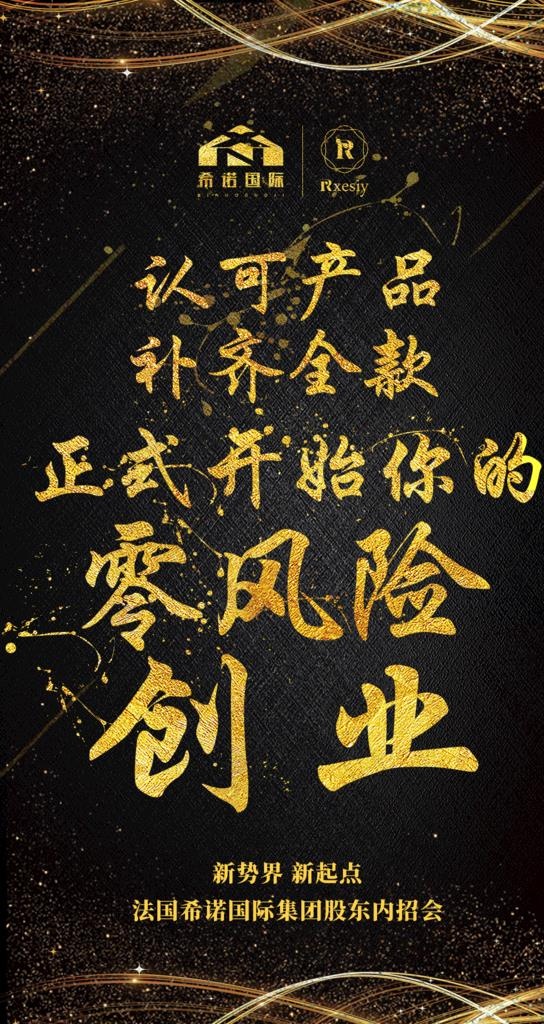 希诺国际
Rxesiy
认可产品
补齐全款
正式开始你的
零风险
创业
新势界 新起点
法国希诺国际集团股东内招会